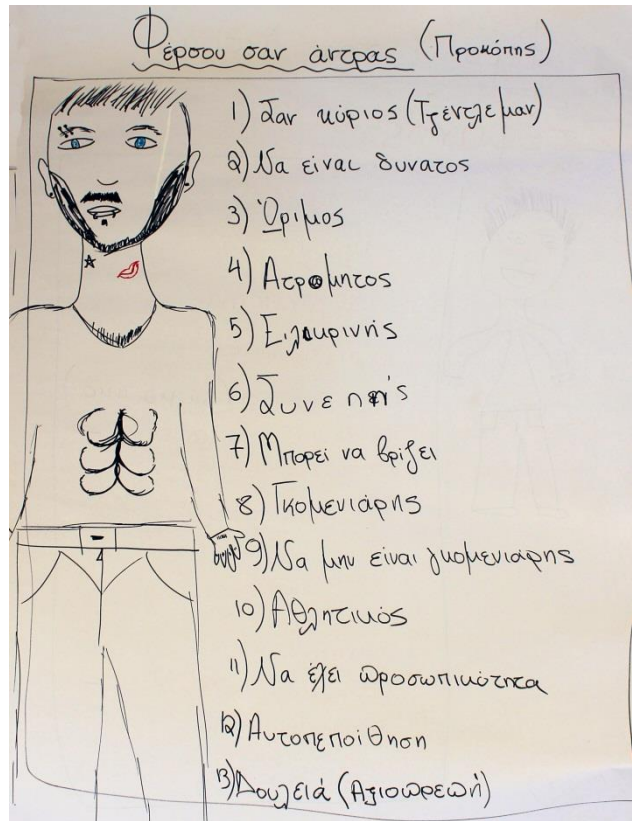 Φέρσου σαν άντρας (Προκόπης)
1) Σαν κύριος (Τζέντλεμαν)
2) Να είναι δυνατος
3) Ώριμος
4) Ατρομητος
5) Ειλικρινής
6) Συνεπής
7) Μπορεί να βρίζει
8) Γκομενιάρης
9) Να μην είναι γκομενιάρης
10) Αθλητικός
11) Να έχει προσωπικότητα
12) Αυτοπεποίθηση
13) Δουλειά (Αξιοπρεπή)